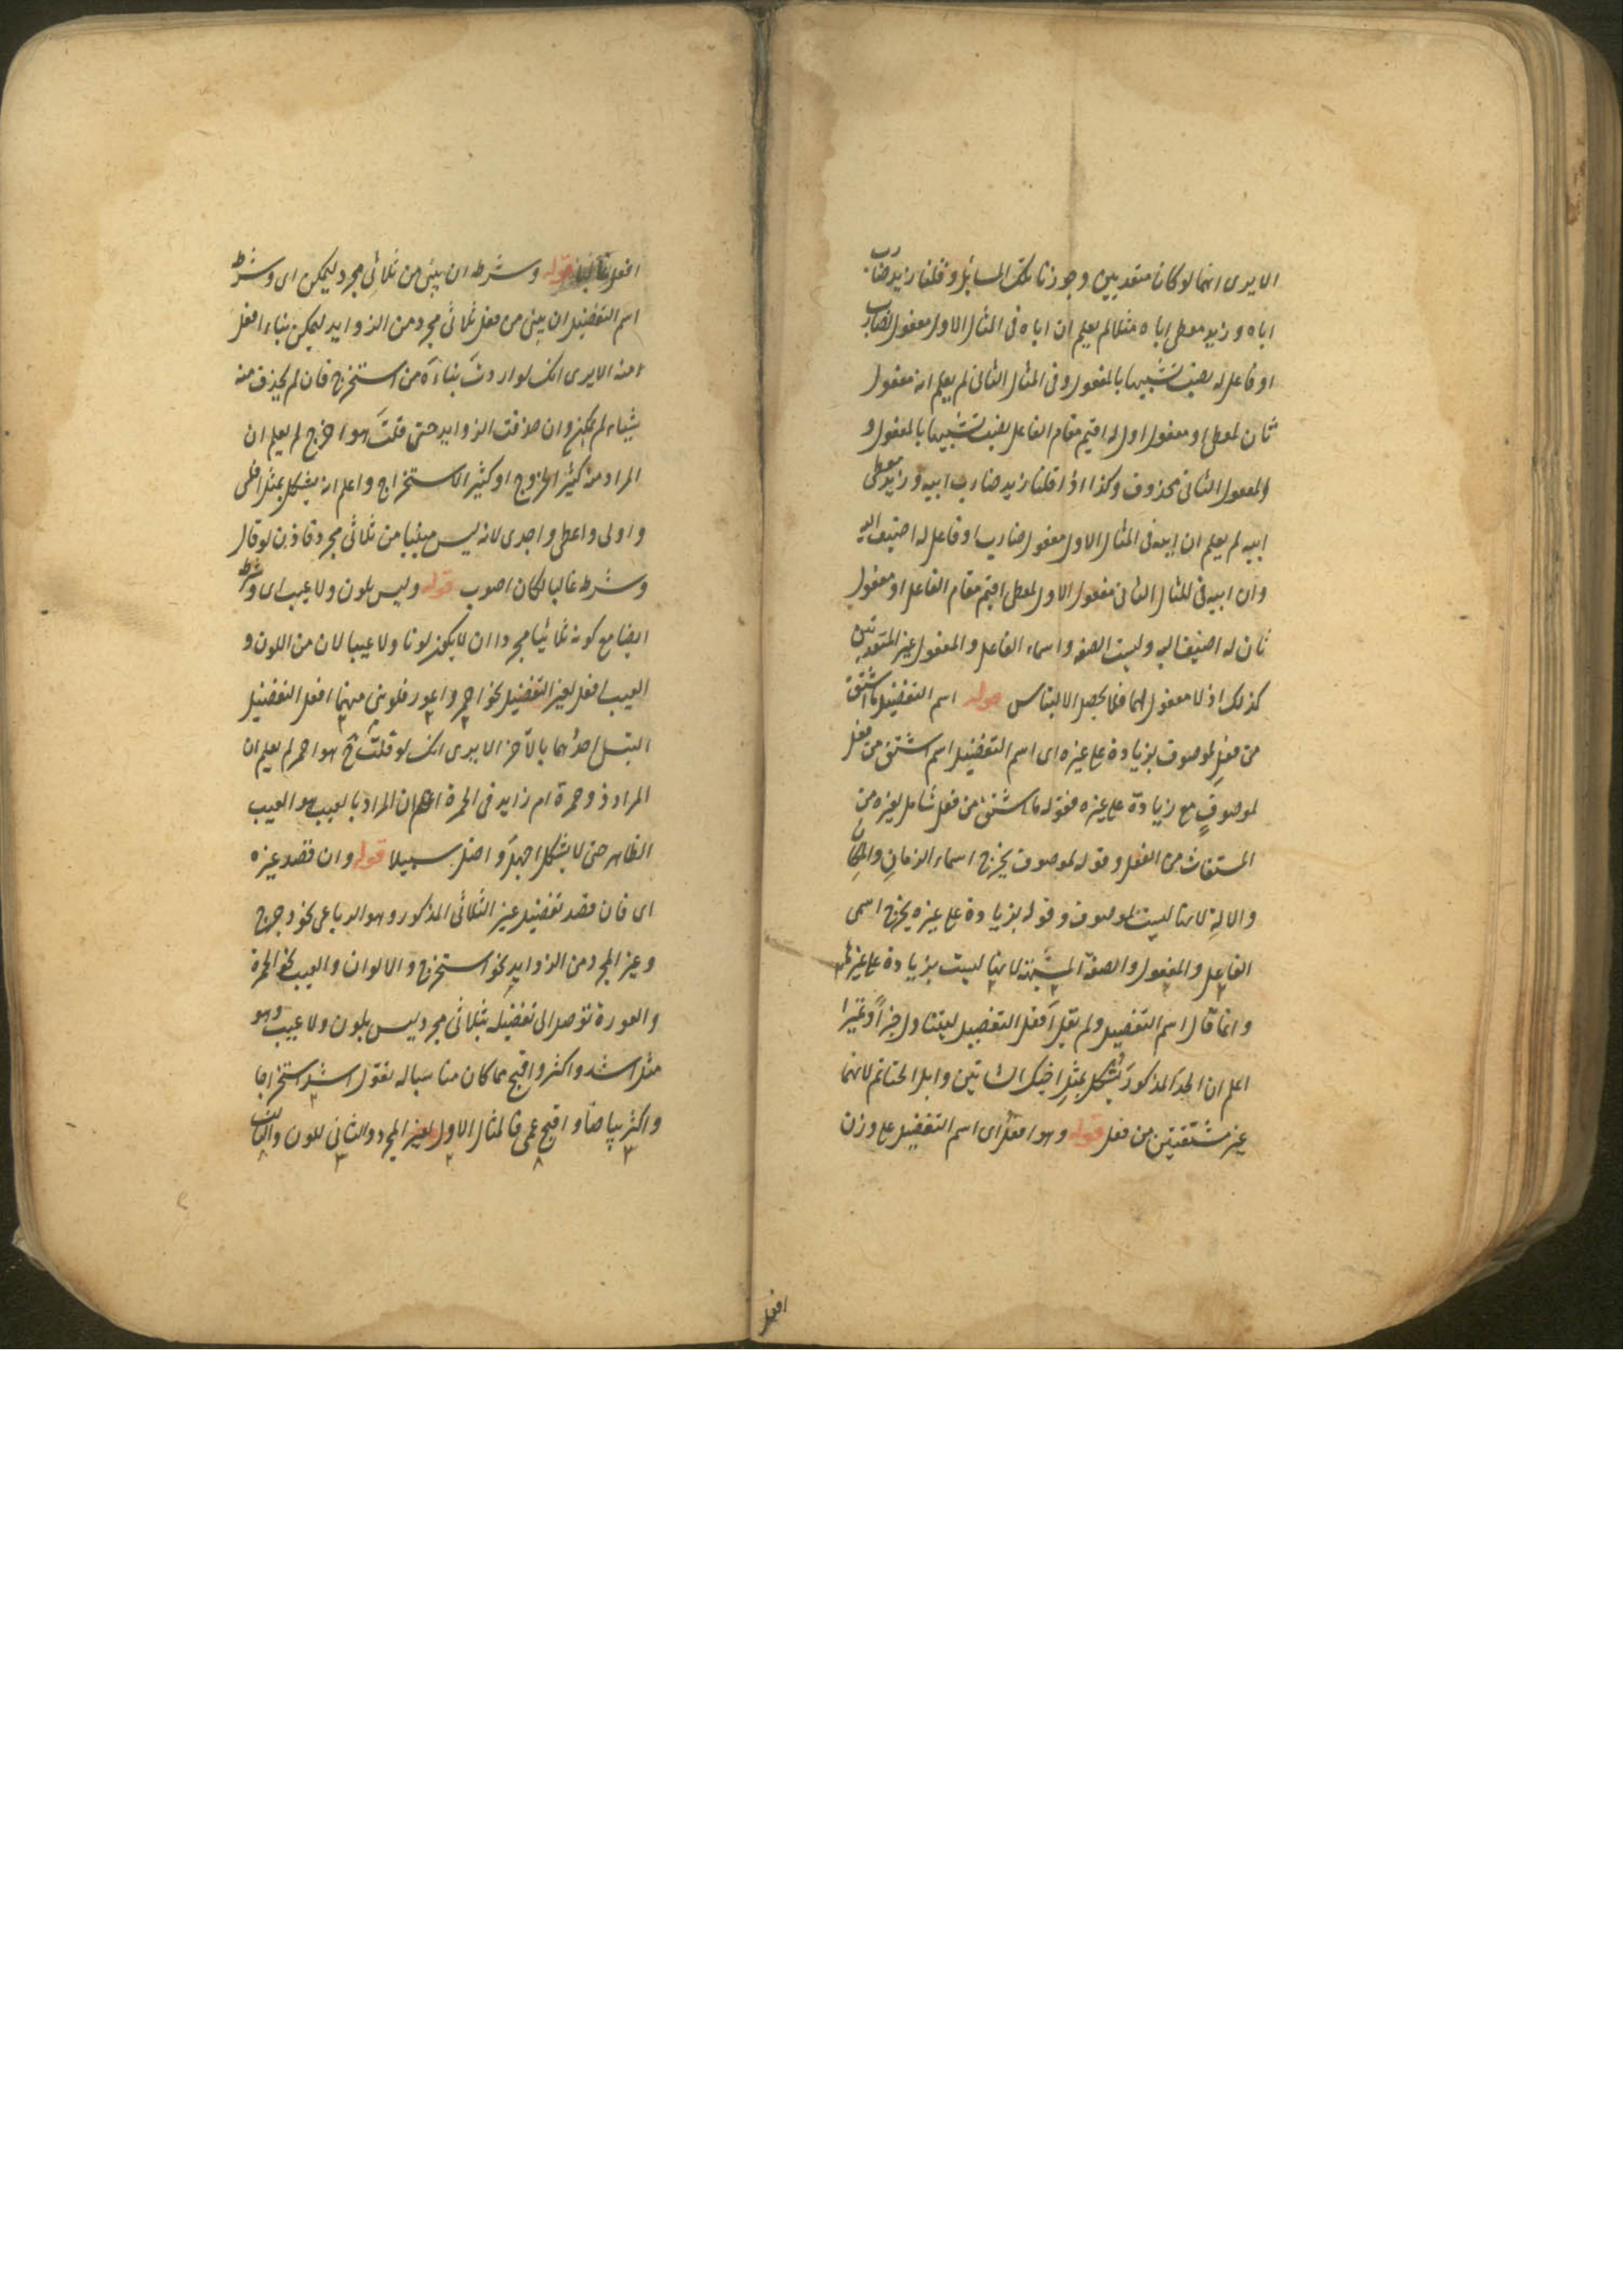 الا يرى انهما لو كانا متعديين وجوزنا تلك المسائل وقلنا زيد ضارب
اباه وزيد معطى اباه مثلا لم يعلم ان اباه فى المثال الاول مفعول لضارب
او فاعل له نصب تشبيها بالمفعول وفى المثال الثانى لم يعلم انه مفعول
ثان لمعطى او مفعول اول له اقيم مقام الفاعل نصب تشبيها بالمفعول و
المفعول الثانى محذوف وكذا اذا قلنا زيد ضارب ابيه وزيد معطى
ابيه لم يعلم ان ابيه فى المثال الاول مفعول ضارب او فاعل له اضيف اليه
وان ابيه فى المثال الثانى مفعول الاول لمعطى اقيم مقام الفاعل او مفعول
ثان له اضيف اليه وليست الصفة واسماء الفاعل والمفعول غير المتعديين
كذلك اذ لا مفعول لهما فلا يحصل الالتباس قوله اسم التفضيل ما اشتق
من فعل لموصوف بزيادة على غيره اى اسم التفضيل اسم اشتق من فعل
لموصوف مع زيادة على غيره فقوله ما اشتق من فعل شامل لغيره من
المشتقات من الفعل وقوله لموصوف يخرج اسماء الزمان والمكان
والالة لانها ليست لموصوف وقوله بزيادة على غيره يخرج اسمى
الفاعل والمفعول والصفة المشبهة لانها ليست بزيادة على غيرها
وانما قال اسم التفضيل ولم يقل افعل التفضيل ليتناول خيرا وشرا
اعلم ان الحد المذكور يشكل بمثل احنك الشاتين وابل الحناتم لانهما
غير مشتقتين من فعل قوله وهو افعل اى اسم التفضيل على وزن
افعل
افعل غالبا قوله وشرطه ان يبنى من ثلاثى مجرد ليمكن اى وشرط
اسم التفضيل ان يبنى من فعل ثلاثى مجرد من الزوايد ليمكن بناء افعل
منه الا يرى انك لو اردت بناءه من استخرج فان لم يحذف منه
شياء لم يمكن وان حذفت الزوايد حتى قلت هو اخرج لم يعلم ان
المراد منه كثير الخروج او كثير الاستخراج واعلم انه يشكل بمثل افلس
واولى واعطى واجدى لانه ليس مبنيا من ثلاثى مجرد فاذن لو قال
وشرطه غالبا لكان اصوب قوله وليس بلون ولا عيب اى وشرطه
ايضا مع كونه ثلاثيا مجردا ان لا يكون لونا ولا عيبا لان من اللون و
العيب افعل لغير التفضيل نحو احمر واعور فلو بنى منهما افعل التفضيل
التبس احدهما بالآخر الا يرى انك لو قلت ح هو احمر لم يعلم ان
المراد ذو حمرة ام زايد فى الحمرة اعلم ان المراد بالعيب هو العيب
الظاهر حتى لا يشكل اجهل واضل سبيلا قوله وان قصد غيره
اى فان قصد تفضيل غير الثلاثى المذكور وهو الرباعى نحو دحرج
وغير المجرد من الزوايد نحو استخرج والالوان والعيب نحو الحمرة
والعورة توصل الى تفضيله بثلاثى مجرد ليس بلون ولا عيب وهو
مثل اشد واكثر واقبح مما كان مناسبا له نقول اشد استخراجا
واكثر بياضا واقبح عمى فالمثال الاول لغير المجرد والثانى للون والثالث